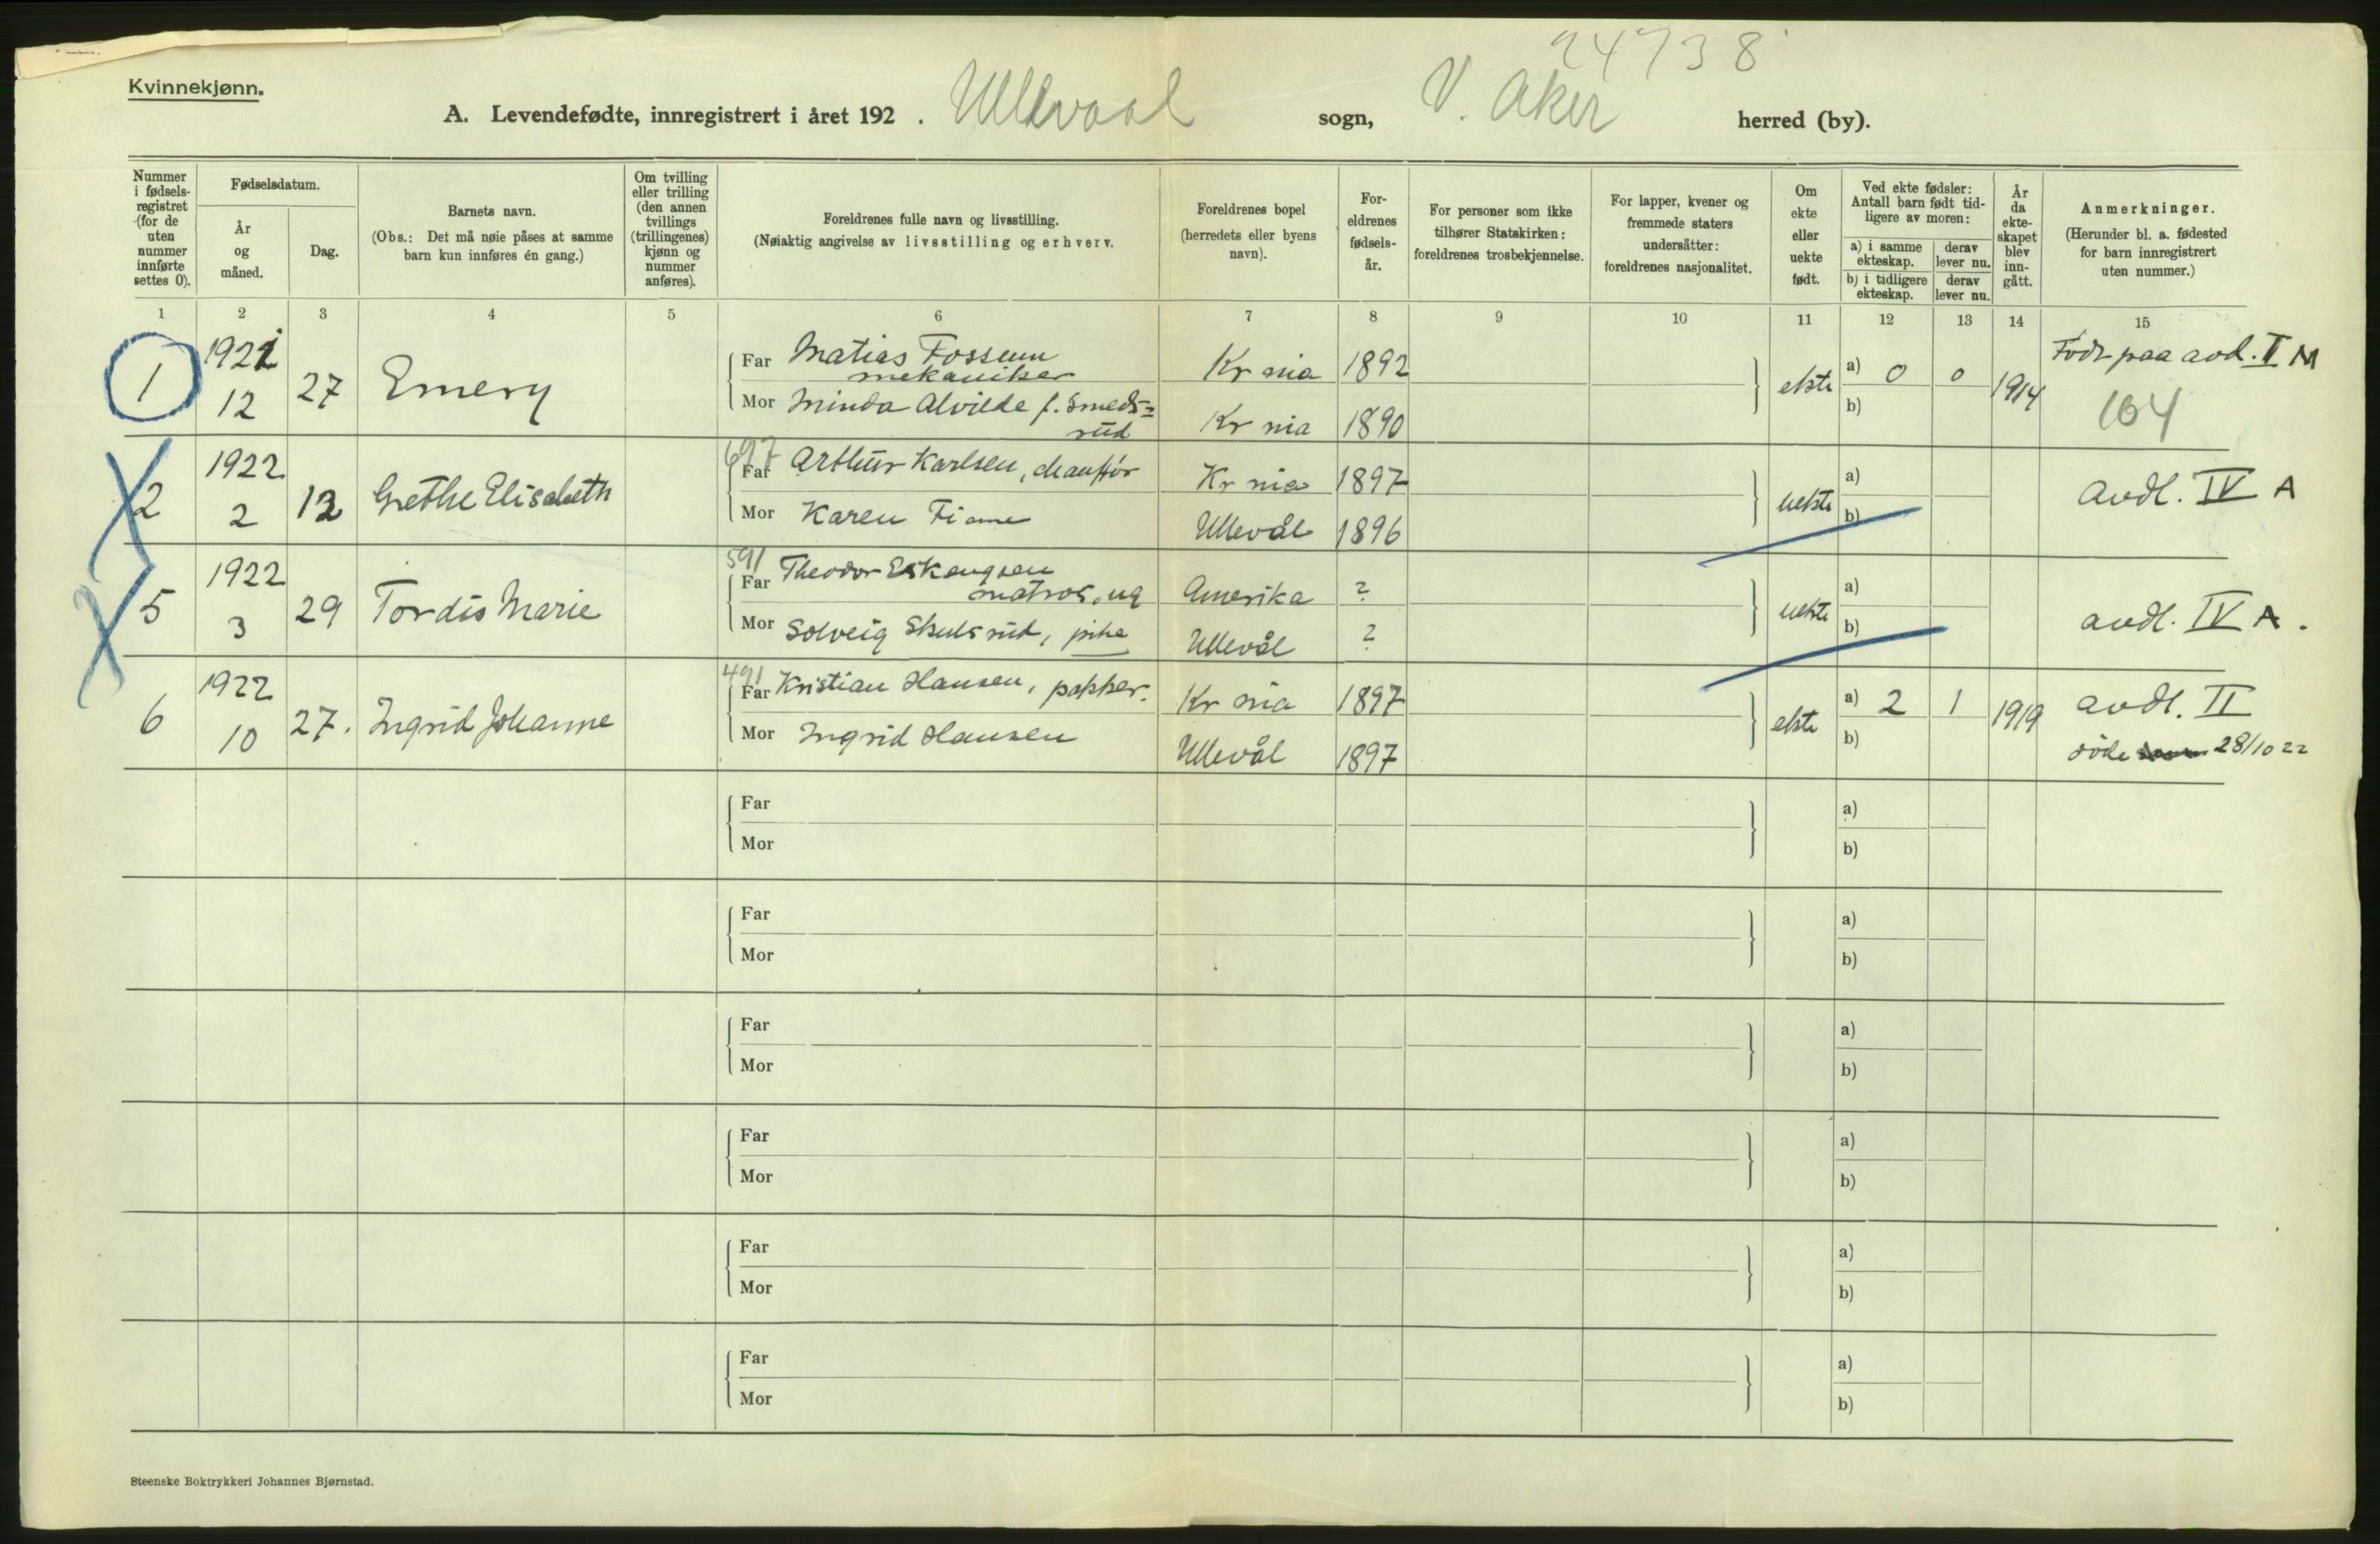 24738
Kvinnekjønn.
A. Levendefødte, innregistrert i året 192 . Ullevaal sogn, V. Aker herred (by).
Nummer i fødselsregistret (for de uten nummer innførte settes 0).
Fødselsdatum.
År og måned.
Dag.
Barnets navn.
(Obs.: Det må nøie påses at samme barn kun innføres én gang.)
Om tvilling eller trilling (den annen tvillings (trillingenes) kjønn og nummer anføres).
Foreldrenes fulle navn og livsstilling.
(Nøiaktig angivelse av livsstilling og erhverv.
Foreldrenes bopel (herredets eller byens navn).
Foreldrenes fødselsår.
For personer som ikke tilhører Statskirken: foreldrenes trosbekjennelse.
For lapper, kvener og fremmede staters undersåtter: foreldrenes nasjonalitet.
Om ekte eller uekte født.
Ved ekte fødsler: Antall barn født tidligere av moren:
a) i samme ekteskap.
derav lever nu.
b) i tidligere ekteskap.
derav lever nu.
År da ekteskapet blev inngått.
Anmerkninger.
(Herunder bl. a. fødested for barn innregistrert uten nummer.)
1 2 3 4 5 6 7 8 9 10 11 12 13 14 15
1 1921 12 27 Emery
Far Matias Fossum mekaniker Kr nia 1892
Mor Minda Alvilde f. Smeds=rud Kr nia 1890
ekte a) 0 0 b) 1914 Født paa avd. I M
104
2 1922 2 12 Grethe Elisabeth
697
Far Arthur Karlsen, chauffør Kr nia 1897
Mor Karen Ullevål 1896
uekte a) b) avdl. IV A
5 1922 3 29 Tordis Marie
591
Far Theodor matros, ug Amerika ?
Mor Solveig Skulsrud, pike Ullevål ?
uekte a) b) avdl. IV A.
6 1922 10 27. Ingrid Johanne
491
Far Kristian Hansen, pakker. Kr nia 1897
Mor Ingrid Hansen Ullevål 1897
ekte a) 2 1 b) 1919 avdl. II
28/10 22
Far a)
Mor b)
Far a)
Mor b)
Far a)
Mor b)
Far a)
Mor b)
Far a)
Mor b)
Far a)
Mor b)
Steenske Boktrykkeri Johannes Bjørnstad.